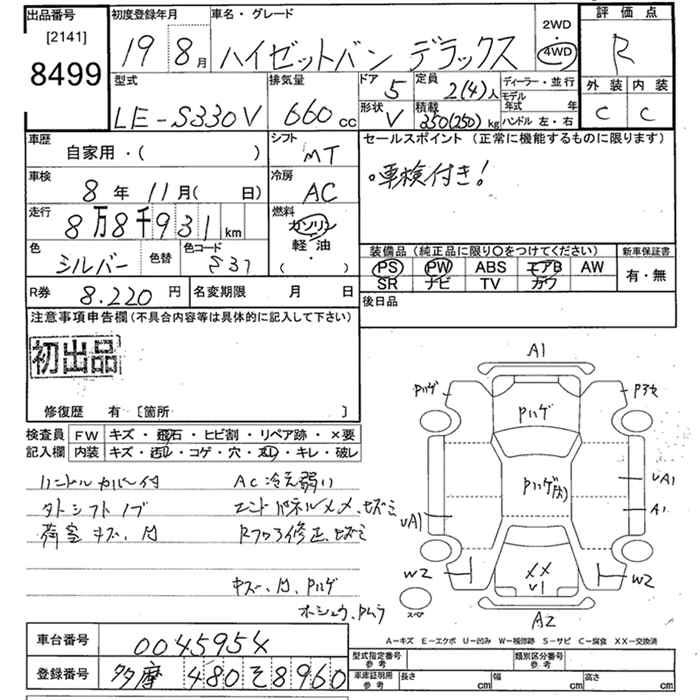 出品番号
[2141]
8499
初度登録年月
19 8月
車名・グレード
ハイゼットバン デラックス
2WD
・
4WD
評価点
R
外装 内装
C C
型式
LE-S330V
排気量
660cc
ドア 5
形状 V
定員 2(4)人
積載 350(250)kg
ディーラー・並行
モデル年式 年
ハンドル 左・右
車歴
自家用・( )
シフト
MT
セールスポイント (正常に機能するものに限ります)
・車検付き!
車検
8年 11月( 日)
冷房
AC
走行
8万8千931km
燃料
ガソリン
軽油
( ・ )
色
シルバー
色替
色コード
S37
装備品 (純正品に限り〇をつけてください)
PS PW ABS エアB AW
SR ナビ TV カワ
新車保証書
有・無
R券 8.220円
名変期限 月 日
後日品
注意事項申告欄 (不具合内容等は具体的に記入して下さい)
初出品
修復歴 有 [箇所 ]
検査員
記入欄
FW キズ・飛石・ヒビ割・リペア跡・×要
内装 キズ・汚レ・コゲ・穴・スレ・キレ・破レ
ハンドルカバー付
AC冷え弱い
タトシフトノブ
荷室キズ、凹
キズ、凹、Pハゲ
A1
Pハゲ
Pハゲ
Pハゲ
UA1
A1
UA1
W2
W2
XX
U1
A2
スペア
A-キズ E-エクボ U-凹み W-補修跡 S-サビ C-腐食 XX-交換済
車台番号
0045954
登録番号
多摩 480 そ 8960
型式指定番号
参考
類別区分番号
参考
車庫証明用
参考
長さ cm
幅 cm
高さ cm